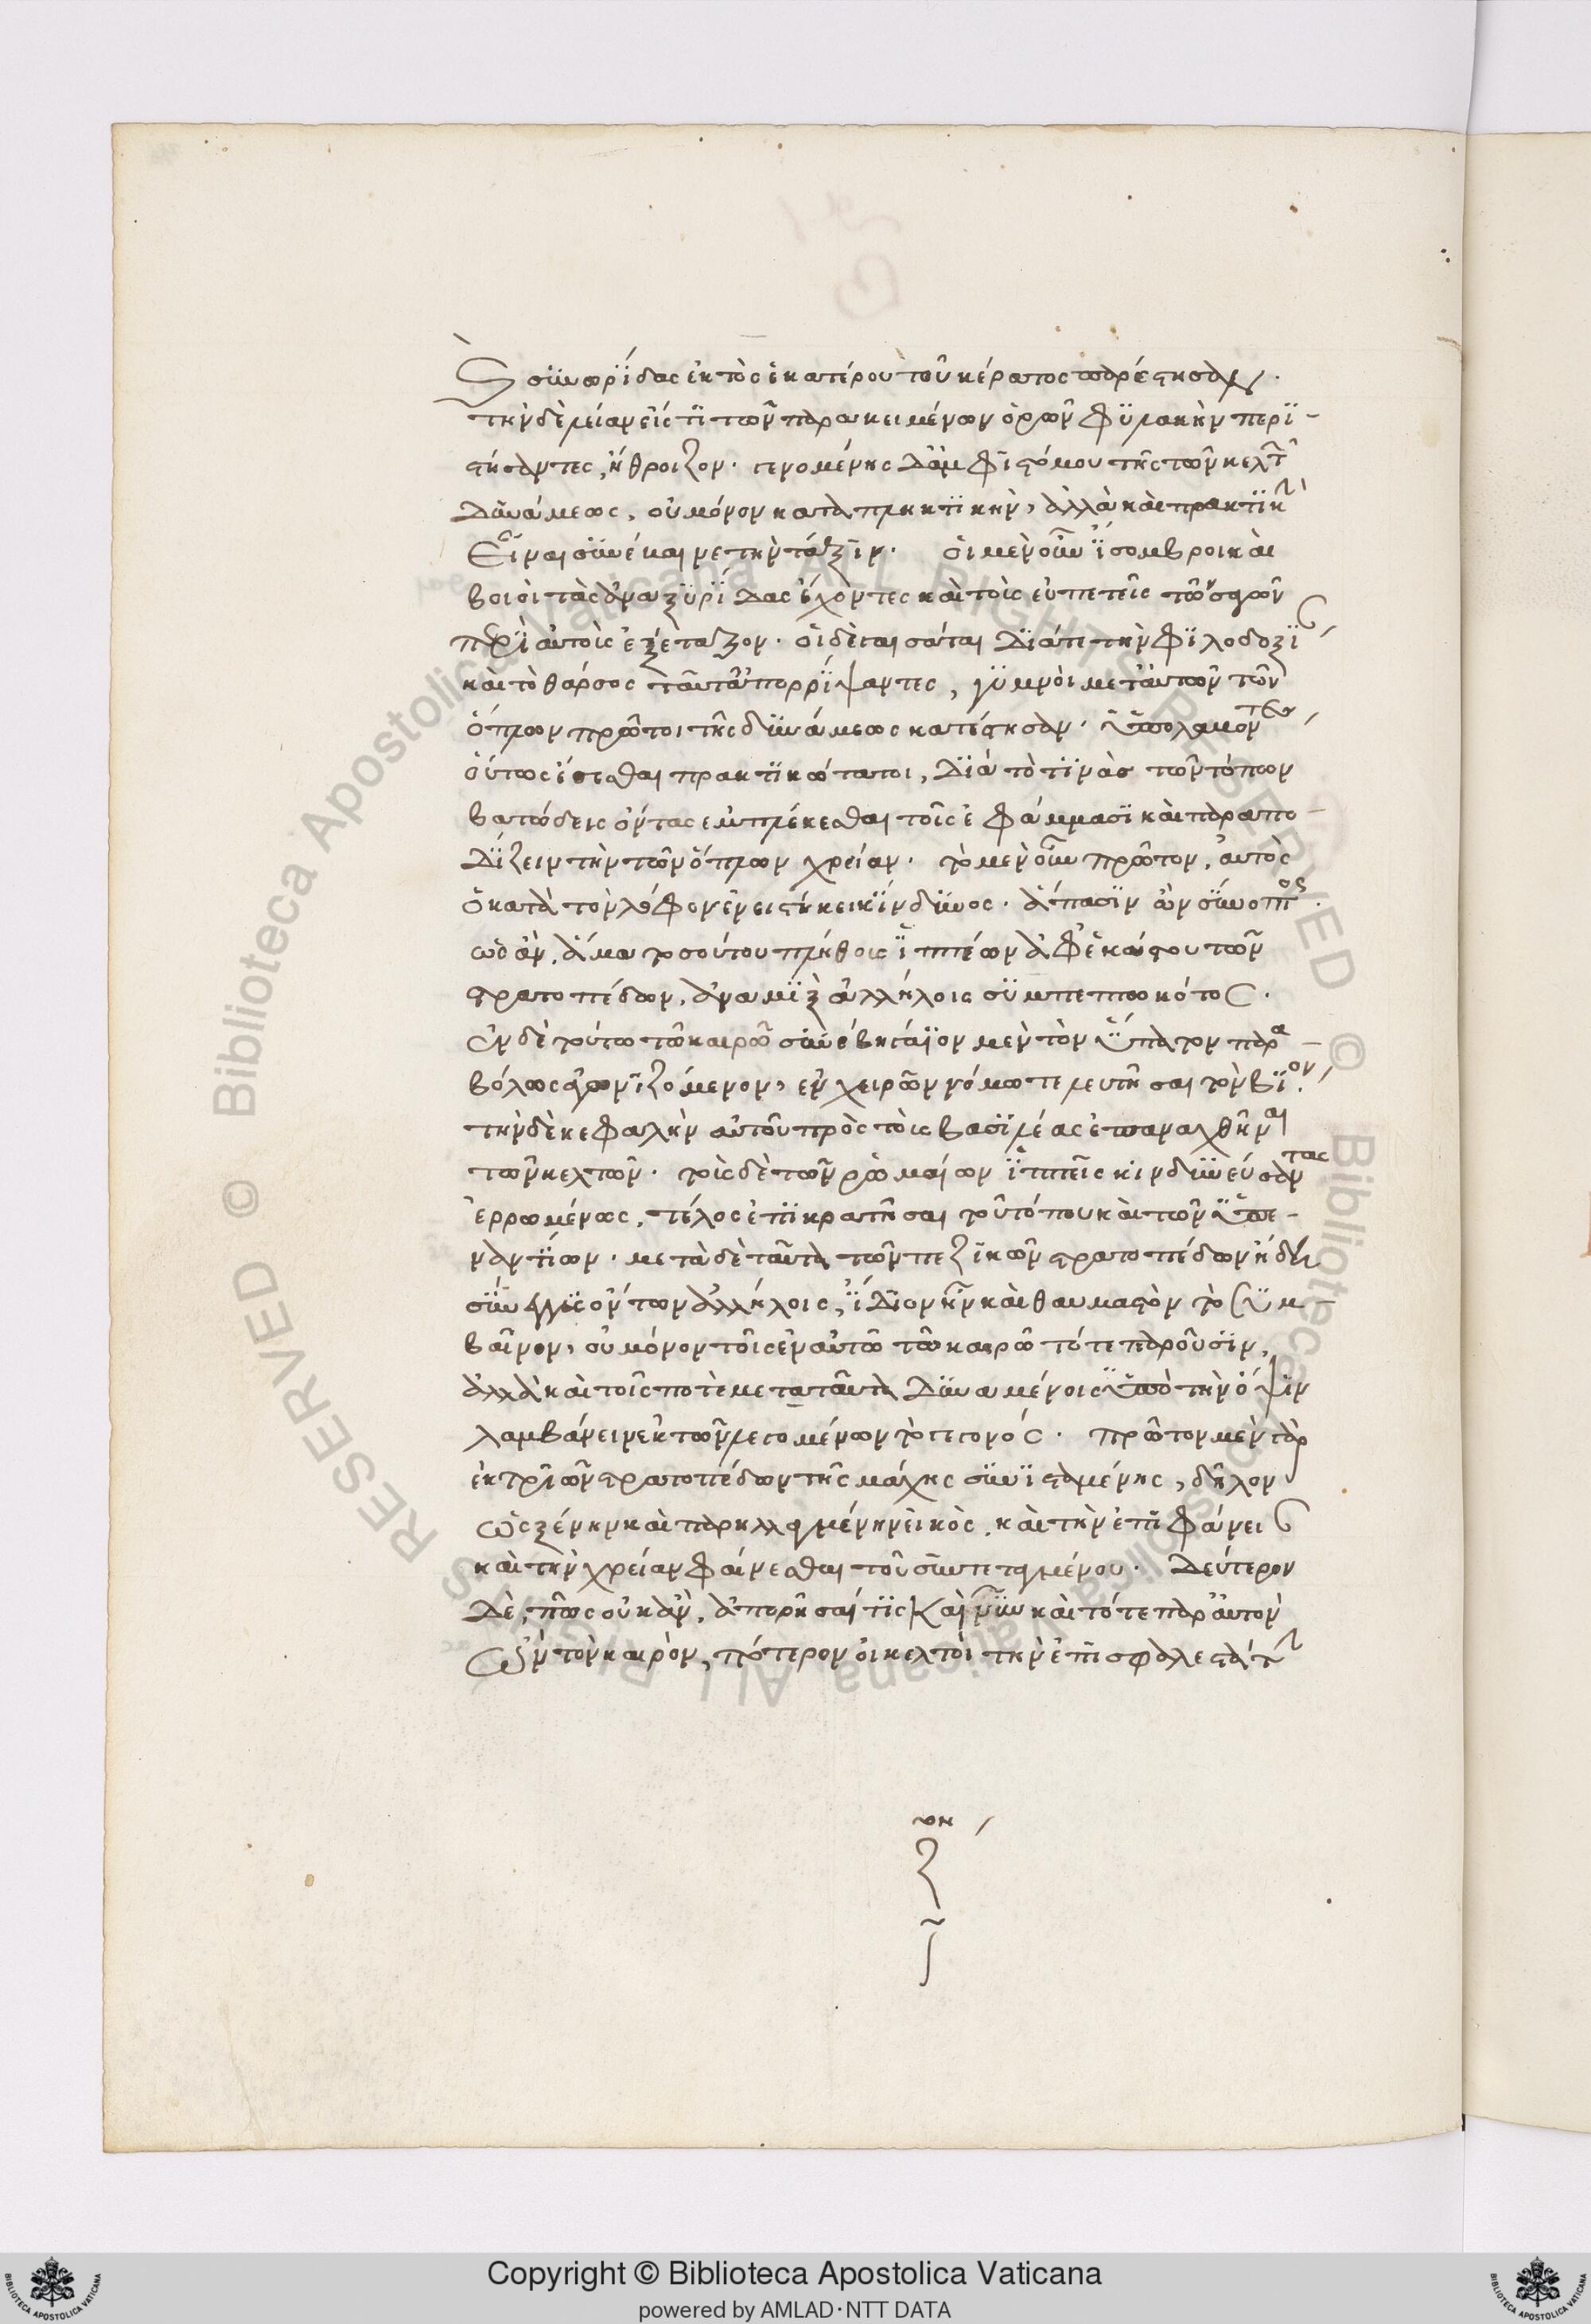 καὶ συνωρίδας ἐκτὸς ἑκατέρου τοῦ κέρατος παρέστησαν.
τὴν δὲ λείαν εἴς τι τῶν παρακειμένων ὀρῶν φυλακὴν περι-
στήσαντες, ἤθροιζον. γενομένης δ' ἀμφιστόμου τῆς τῶν κελτῶν
δυνάμεως, οὐ μόνον καταπληκτικὴν, ἀλλὰ καὶ πρακτικὴν
εἶναι συνέβαινε τὴν τάξιν. οἱ μὲν οὖν ἴσομβροι καὶ
βοιοὶ τὰς ἀναξυρίδας ἔχοντες καὶ τοὺς εὐπετεῖς τῶν σάγων
περὶ αὐτοὺς ἐξέταξαν. οἱ δὲ γαισάται διά τε τὴν φιλοδοξίαν
καὶ τὸ θάρσος ταῦτ' ἀπορρίψαντες, γυμνοὶ μετ' αὐτῶν τῶν
ὅπλων πρῶτοι τῆς δυνάμεως κατέστησαν. ὑπολαβόντες
οὕτως ἔσεσθαι πρακτικώτατοι, διὰ τὸ τινὰς τῶν τόπων
βατώδεις ὄντας ἐμπλέκεσθαι τοῖς ἐφάμμασι καὶ παραπο-
δίζειν τὴν τῶν ὅπλων χρείαν. τὸ μὲν οὖν πρῶτον, αὐτὸς
ὁ κατὰ τὸν λόφον ἐνειστήκει κίνδυνος. ἅπασιν ὢν σύνοπτος.
ὡς ἂν, ἅμα τοσούτου πλήθους ἱππέων ἀφ' ἑκάστου τῶν
στρατοπέδων, ἀναμὶξ ἀλλήλοις συμπεπτωκότος.
ἐν δὲ τούτω τῶ καιρῶ συνέβη γάϊον μὲν τὸν ὕπατον παρα-
βόλως ἀγωνιζόμενον, ἐν χειρῶν νόμω τελευτῆσαι τὸν βίον.
τὴν δὲ κεφαλὴν αὐτοῦ πρὸς τοὺς βασιλέας ἐπαναχθῆναι
τῶν κελτῶν. τοὺς δὲ τῶν ῥωμαίων ἱππεῖς κινδυνεύσαντας
ἐρρωμένως, τέλος ἐπικρατῆσαι τοῦ τόπου καὶ τῶν ὑπε-
ναντίων. μετὰ δὲ ταῦτα τῶν πεζικῶν στρατοπέδων ἤδη
σύνεγγυς ὄντων ἀλλήλοις, ἴδιον ἦν καὶ θαυμαστὸν τὸ συμ-
βαῖνον, οὐ μόνον τοῖς ἐν αὐτῶ τῶ καιρῶ τότε παροῦσιν,
ἀλλὰ καὶ τοῖς ποτὲ μετὰ ταῦτα δυναμένοις ὑπὸ τὴν ὄψιν
λαμβάνειν ἐκ τῶν λεγομένων τὸ γεγονός. πρῶτον μὲν γὰρ
ἐκ τριῶν στρατοπέδων τῆς μάχης συνισταμένης, δῆλον
ὡς ξένην καὶ παρηλλαγμένην εἰκὸς, καὶ τὴν ἐπιφάνειαν
καὶ τὴν χρείαν φαίνεσθαι τοῦ συντεταγμένου. δεύτερον
δὲ, πῶς οὐκ ἂν, ἀπορήσαί τις καὶ νῦν καὶ τότε παρ' αὐτὸν
ὢν τὸν καιρὸν, πότερον οἱ κελτοὶ τὴν ἐπισφαλεστάτην